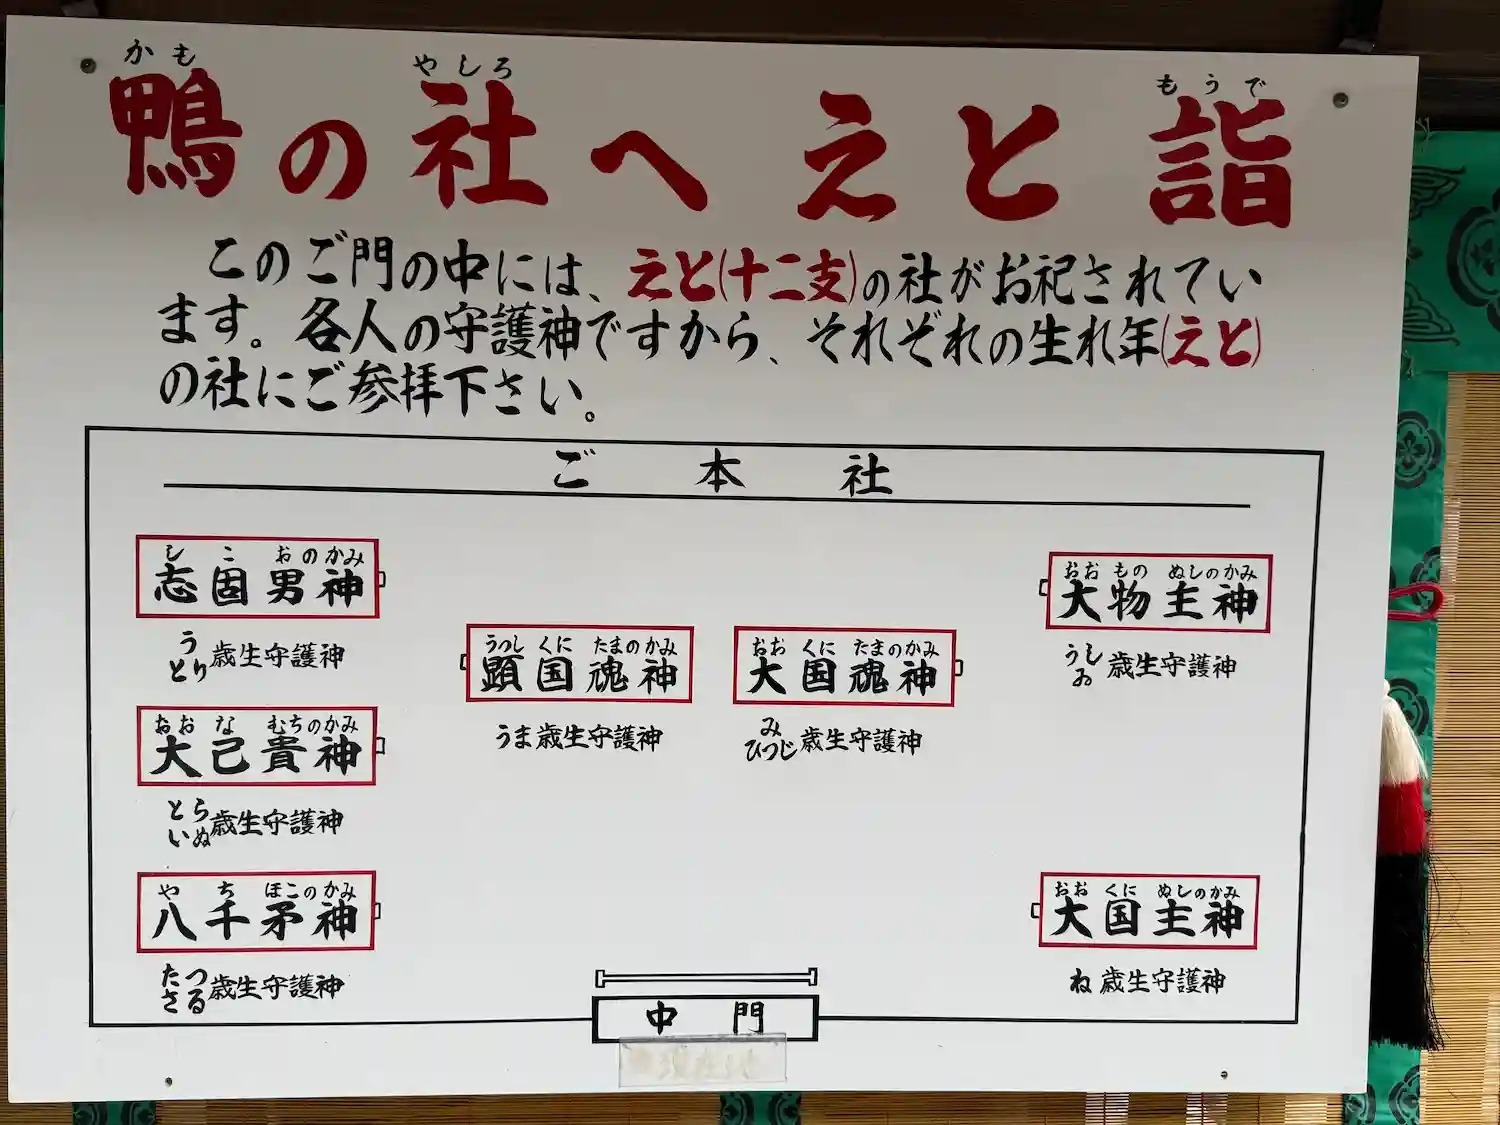 かも やしろ もうで
鴨の社へ えと 詣
このご門の中には、えと(十二支)の社がお祀されてい
ます。各人の守護神ですから、それぞれの生れ年(えと)
の社にご参拝下さい。
ご 本 社
しこおのかみ
志固男神
うとり歳生守護神
おおものぬしのかみ
大物主神
うしお歳生守護神
うつしくにたまのかみ
顕国魂神
うま歳生守護神
おおくにたまのかみ
大国魂神
みひつじ歳生守護神
おおなむちのかみ
大己貴神
とらいぬ歳生守護神
やちほこのかみ
八千矛神
たつさる歳生守護神
おおくにぬしのかみ
大国主神
ね歳生守護神
中 門